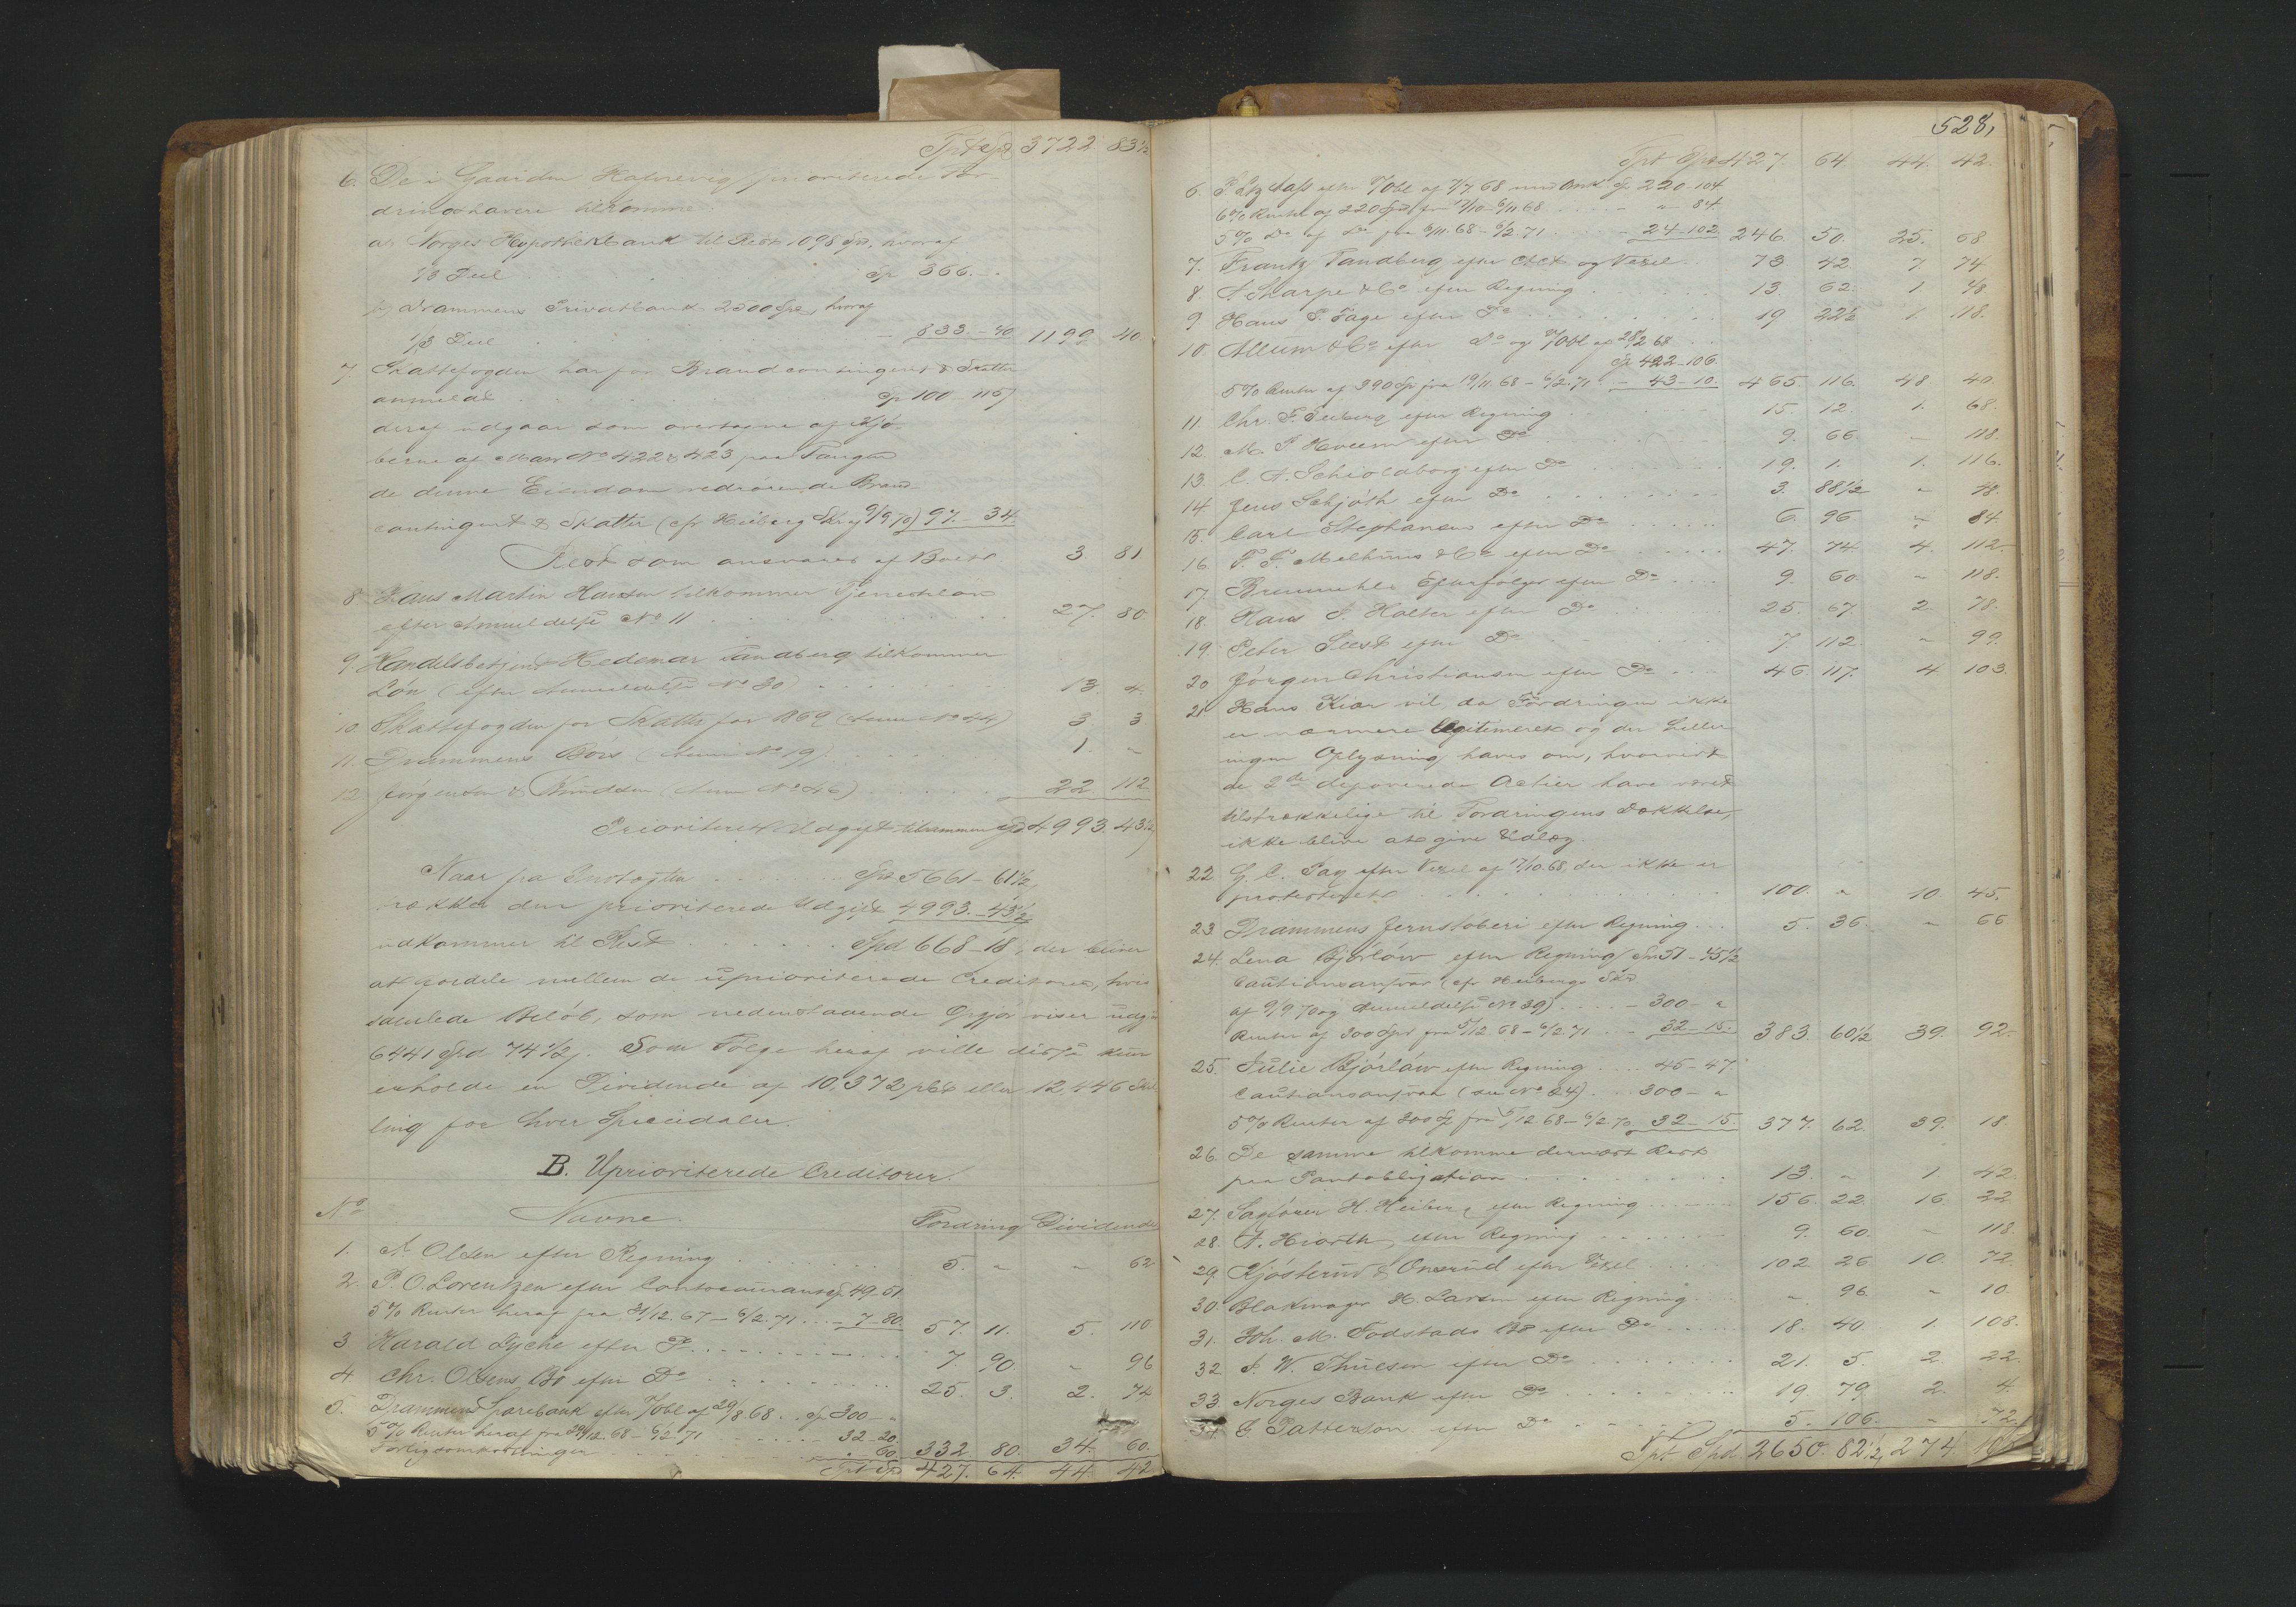 Tpt Spd 3722. 83 1/2
6. De i Gaarden Havnevig prioriterede For-
dringshavere tilkomme.
a) Norges Hypothekbank til Rest 1098 Spd, hvoraf
1/3 Deel . . . . Sp 366. -
b) Drammens Privatbank 2500 Spd, hvoraf
1/3 Deel . . . - 833. - 40 1199. 40.
7. Skattefogden har for Brandcontingent & Skatter
anmeldt . . . . Sp 100 - 115
deraf udgaar som overtagne af Kjö-
berne af Matr No 422 & 423 paa Tangen
de denne Eiendom vedrörende Brand-
contingent & Skatter (cfr Heiberg Skr af 9/9 70) 97. - 34.
Rest som ansvares af Boet 3. 81.
8. Hans Martin Hansen tilkommer Tjenestelön
efter Anmeldelse No 11 . . . . 27. 80.
9. Handelsbetjent Hedemar Tandberg tilkommer
Lön (efter Anmeldelse No 30) . . . . 13. 4.
10. Skattefogden for Skatter for 1869 (Anm No 44) 3. 3
11. Drammens Börs (Anm No 19) . . . . 1. "
12. Jörgensen & Knudsen (Anm No 46) . . . . 22. 112
Prioriteret Udgift tilsammen Spd 4993. 43 1/2
Naar fra Indtægten . . . . Spd 5661 - 61 1/2
trækkes den prioriterede Udgift 4993. - 43 1/2
udkommer til Rest . . . . Spd 668 - 18, der bliver
at fordele mellem de uprioriterede Creditorer, hvis
samlede Belöb, som nedenstaaende Opgjör viser udgjör
6441 Spd 74 1/2 s. Som Fölge heraf ville disse kun
erholde en Dividende af 10,372 pCt eller 12,446 Skil-
ling for hver Speciedaler.
B. Uprioriterede Creditorer.
No Navne. Fordring Dividende
1. A. Olsen efter Regning . . . . 5. " " 62
2. P. O. Lorentzen efter Contocourant Sp 49. 51.
5% Renter heraf fra 31/12. 67 - 6/2. 71 . . - 7 - 80. 57. 11. 5. 110
3 Harald Lyche efter Do . . . . 7. 90. " 96
4 Chr. Olsens Bo efter Do . . . . 25. 3. 2. 74
5. Drammens Sparebank efter V/Obl af 29/8. 68 . . Sp 300 - "
5% Renter heraf fra 29/12. 68 - 6/2. 71 . . . . 32 - 20.
Forligsomkostninger . . . . " 60. 332. 80. 34. 60.
Tpt Sp 427. 64. 44. 42
528,
Tpt Spd 427. 64. 44. 42.
6. efter V/Obl af 7/7 68 med Omk. Sp. 220 - 104
6% Renter af 220 Spd fra 17/10 - 6/11 68 . . . - " - 84.
5% Do af Do fra 6/11. 68 - 6/2. 71 . . . - 24 - 102. 246. 50. 25. 68
7. Frantz Tandberg efter og Vexel . . 73. 42. 7. 74
8. A Sharpe & Co efter Regning . . . . 13. 62. 1. 48
9 Hans P. Fage efter Do . . . . 19 22 1/2 1. 118.
10. Allum & Co efter Do og V/Obl af 28/2 68 . .
Sp 422 - 106.
5% Renter af 390 Sp fra 19/11. 68 - 6/2. 71 . . - 43 - 10. 465. 116. 48. 40.
11. Chr. F. Seeberg efter Regning . . . . 15. 12. 1. 68.
12. M. P. Hveem efter Do . . . . 9. 66. - 118.
13. C. A. Schioldborg efter Do . . . . 19. 1. 1. 116.
14. Jens Schjöth efter Do . . . . 3. 88 1/2 " 48.
15. Carl Stephansen efter Do . . . . 6. 96. " 84.
16. F. F. Melhuus & Co efter Do . . . . 47. 74. 4. 112.
17. Efterfölger efter Do . . . . 9. 60. " 118.
18. Hans J. Halter efter Do . . . . 25. 67. 2. 78.
19. Peter Seest efter Do . . . . 7. 112. " 99.
20 Jörgen Christiansen efter Do . . . . 46. 117. 4 103.
21 Hans Kiær vil, da Fordringen ikke
er nærmere legitimeret og der heller
ingen Oplysning haves om, hvorvidt
de 2de deponerede Actier have været
tilstrækkelige til Fordringens Dækkelse,
ikke blive at give Udlæg.
22 G. C. Fay efter Vexel af 17/10. 68, der ikke er
protesteret . . . . 100. " 10. 45.
23. Drammens Jernstöberi efter Regning . . . 5. 36. " 66
24. Lena Björlöw efter Regning Sp 51 - 45 1/2
Cautionsansvar (cfr Heibergs Skr
af 9/9. 70 og Anmeldelse No 39) . . . - 300 - "
Renter af 300 Spd fra 5/12. 68 - 6/2. 71 . . - 32 - 15. 383. 60 1/2 39. 92.
25. Julie Björlöw efter Regning . . . . 45 - 47.
Cautionsansvar (see No 24) . . . 300 - "
5% Renter af 300 Sp fra 5/12. 68 - 6/2. 70 . 32 - 15. 377. 62. 39. 18.
26. De samme tilkomme dernæst Rest
paa Pantobligation . . . . 13. " 1. 42.
27. Sagförer H. Heiberg efter Regning . . . . 156. 22. 16. 22
28. A. Hiorth, efter Regning . . . . 9. 60. " 118.
29. Kjösterud & Onsrud efter Vexel . . . . 102. 26. 10. 72.
30. Blokmager H. Larsen efter Regning . . . " 96. " 10.
31. Joh. M. Fodstads Bo efter Do . . . . 18. 40. 1. 108.
32 J. W. Thuesen efter Do . . . . 21. 5. 2. 22.
33. Norges Bank efter Do . . . . 19. 79. 2. 4.
34. G Patterson efter Do . . . . 5. 106. " 72.
Tpt. Spd 2650. 82 1/2 274